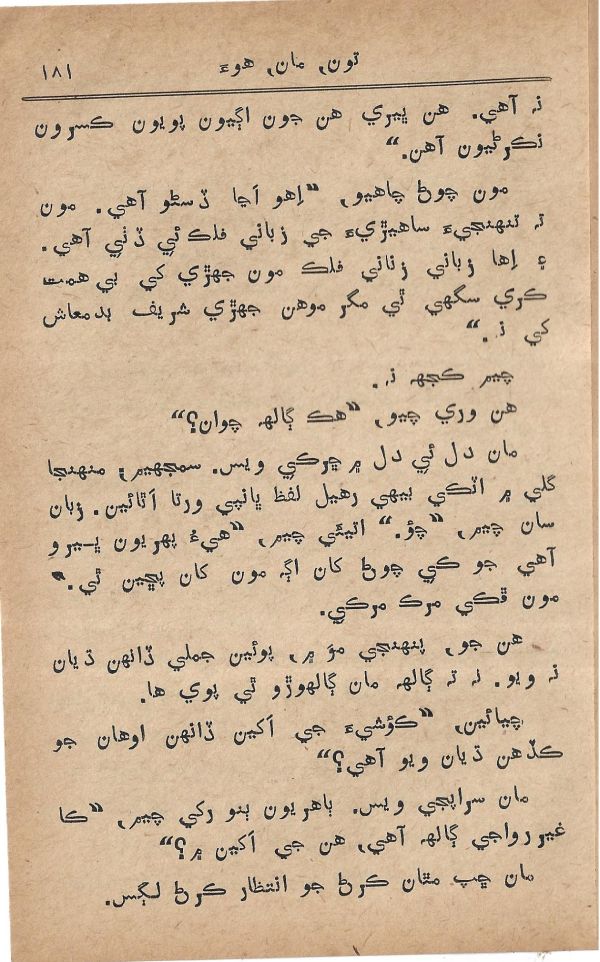 تون، مان، هوءَ ١٨١
نہ آهي. هن ڀيري هن جون اڳيون پويون ڪسرون
نڪرڻيون آهن.“
مون چوڻ چاهيو، ”اِهو اَڃا ڏسڻو آهي. مون
تہ تنهنجيءَ ساهيڙيءَ جي زباني فلڪ ئي ڏٺي آهي.
۽ اِها زباني زناني فلڪ مون جهڙي کي بي همت
ڪري سگهي ٿي مگر موهن جهڙي شريف بدمعاش
کي نہ.“
چيم ڪجهہ نہ.
هن وري چيو، ”هڪ ڳالهہ چوان؟“
مان دل ئي دل ۾ ڇرڪي ويس. سمجهيم؛ منهنجا
گلي ۾ اٽڪي بيهي رهيل لفظ ڀانپي ورتا اَٿائين. زبان
سان چيم، ”چؤ.“ ائيئي چيم، ”هيءُ پهريون ڀيرو
آهي جو ڪي چوڻ کان اڳہ مون کان پڇين ٿي.“
مون ڦڪي مرڪ مرڪي.
هن جو، پنهنجي مؤ ۾، پوئين جملي ڏانهن ڌيان
نہ ويو. نہ تہ ڳالهہ مان ڳالهوڙو ٿي پوي ها.
چيائين، ”ڪؤشيءَ جي اَکين ڏانهن اوهان جو
ڪڏهن ڌيان ويو آهي؟“
مان سراپجي ويس. ٻاهريون ٻنو رکي چيم، ”ڪا
غير رواجي ڳالهہ آهي، هن جي اَکين ۾؟“
مان چپ مٿان ڪرڻ جو انتظار ڪرڻ لڳس.